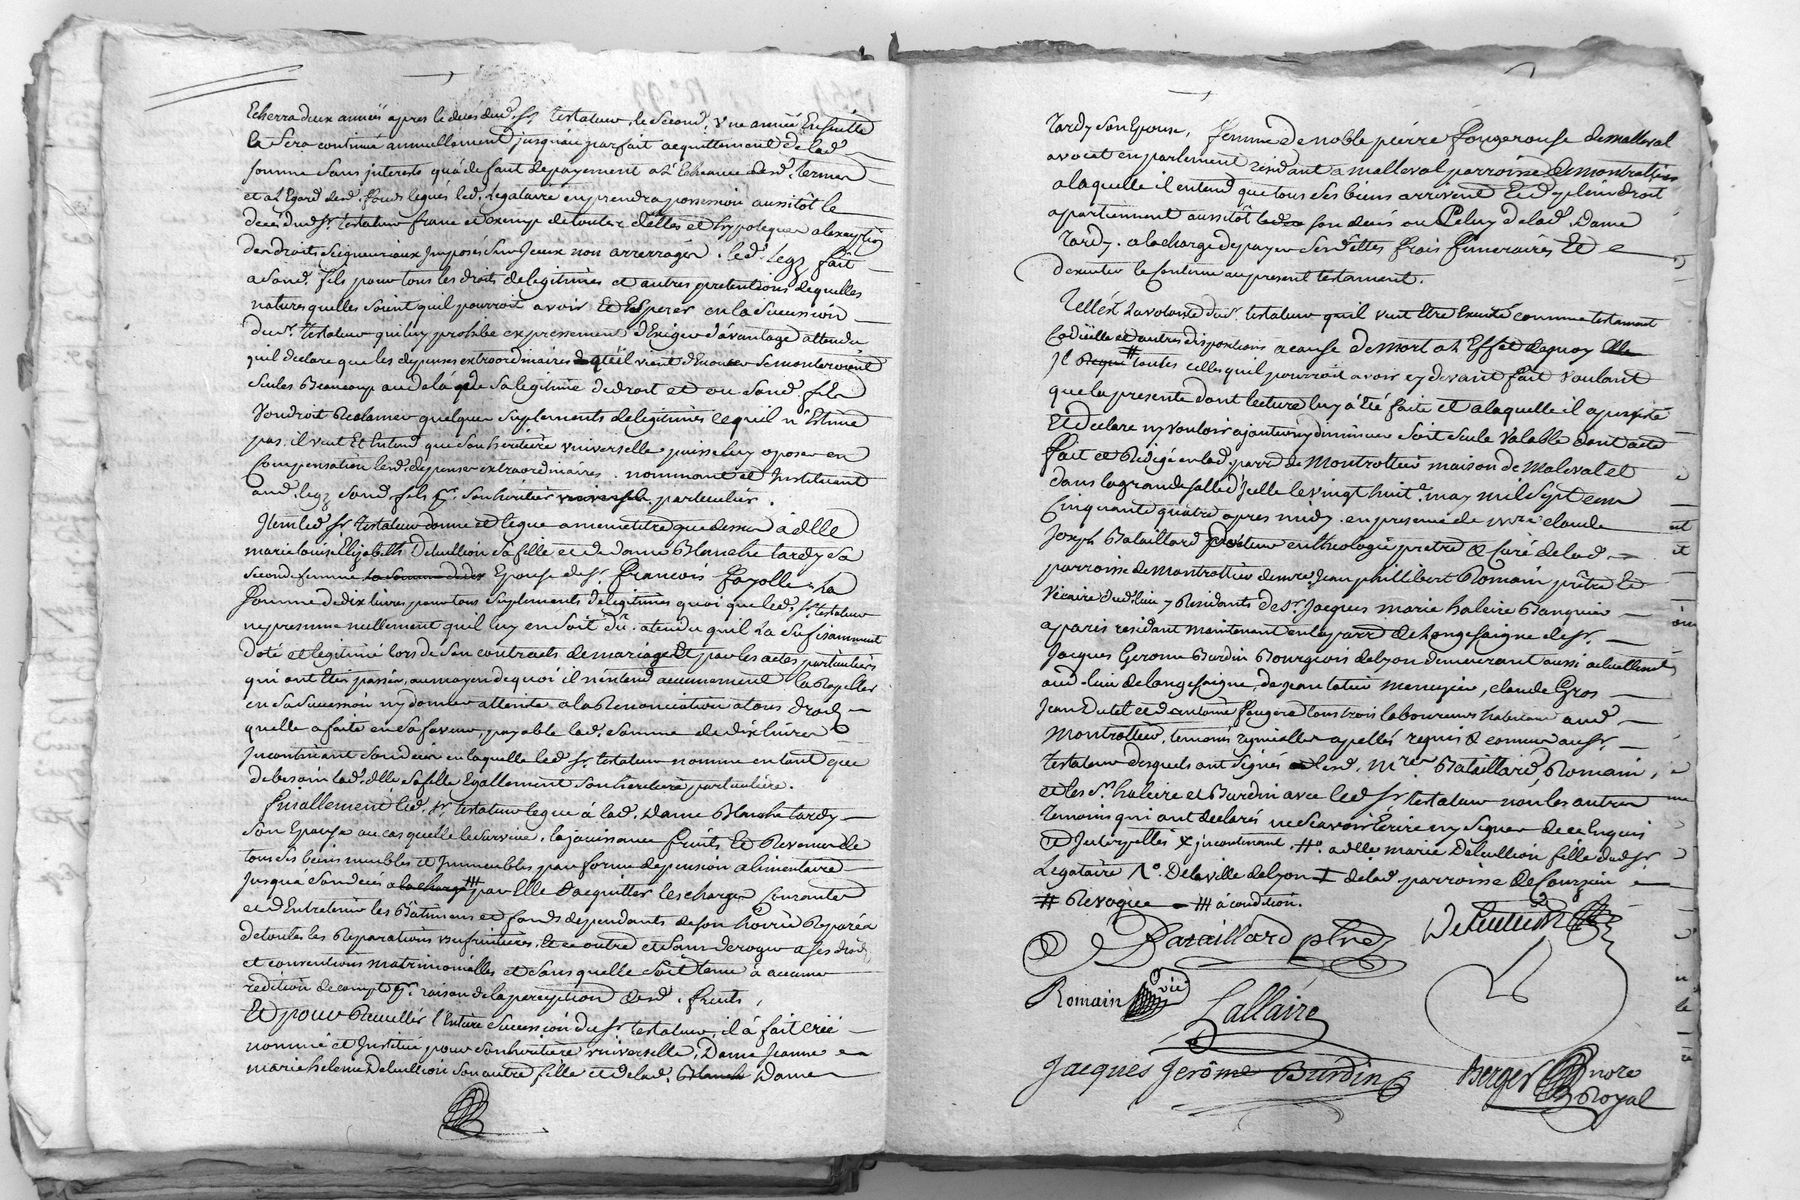 Echerra deux années apres le décés dud. Sr. testateur, le second, Une année Ensuitte
la Sera continué annuellement jusqu'au parfait acquittement de lad.
somme Sans interests qu'a defaut de payement a L'Echeance desd. termes
et a L'Egard desd. fonds legués led. Legataire en prendra possession aussitôt le
décés dud. Sr. testateur franc et exempt de toutes dettes et hypoteques a lexception
des droits Seigneuriaux Imposés Sur Jceux non arrerragés. led. Legs fait
a Sond. fils pour tous les droits de legitimes et autres pretentions de quelles
natures quelles Soient quil pourroit avoir Et Esperer en la Sucession
dud. Sr. testateur qui luy prohibe expressement d'Exiger d'avantage attendu
quil declare que les depenses extraordinaires qu'il vient d'Enoncer Se monteroient
Seules Beaucoup au dela de Sa legitime de droit et ou Sond. fils
Voudroit Reclamer quelques Suplements de legitimes ce quil n'Estime
pas, il veut Et Entend que Son heritiere universelle puisse luy oposer en
Compensation lesd. depenses extraordinaires. nommant et Instituant
aud. legs Sond. fils pr. Son heritier particulier.
Item led. Sr. testateur donne et legue a meme titre que dessus à dlle
marie louise Elizabeth Deluillion sa fille et de dame Blanche tardy sa
seconde femme Epouse de Sr. francois fayolle La
Somme de dix livres pour tous Suplements de legitimes quoi que led. Sr. testateur
ne presume nullement quil luy en Soit dû, atendu quil La Sufisamment
doté et legitimé lors de Son contract de mariage Et par les actes particuliers
qui ont Eté passés, au moyen de quoi il n'entend aucunement la Rapeller
en Sa Sucession ny donner atteinte a la Renonciation a tous droits
quelle a faite en Sa faveur, payable lad. Somme de dix livres
Incontinent Son décés en laquelle led. Sr. testateur nomme en tant que
de besoin lad. dlle Sa fille Egallement Son heritiere particuliere.
Finallement led. Sr. testateur legue à lad. Dame Blanche tardy
Son Epouse au cas quelle le Survive, la jouissance fruits Et Revenus de
tous Ses biens meubles et Immeubles par forme de pension alimentaire
Jusqu'a Son decés a la charge ⧻ par Elle d'acquitter les charges Courantes
et d'Entretenir les Bâtimens et fonds dependants de Son hoirie Reparés
de toutes les Reparations usufruitieres, Et ce outre et Sans deroger a Ses droits
et conventions matrimonialles et Sans quelle Soit tenue à aucune
rédition de compte pr. raison de la perception desd. fruits.
Et pour Recueillir l'Entiere Sucession dud. Sr. testateur, il à fait créé
nommé et Institué pour Son heritiere universelle, Dame Jeanne
marie helene Deluillion Son autre fille et de lad. Dame
Tardy Son Epouse, femme de noble pierre Fougerouse de malleval
avocat en parlement residant a malleval parroisse de montrottier
a laquelle il entend que tous Ses biens arrivent Et de plein droit
apartiennent aussitôt Son decés ou Celuy de lad. Dame
Tardy. a la charge de payer Ses dettes frais funeraires Et
d'executer le Contenu au present testament.
Telle est La volonté dud. Sr. testateur quil veut Etre Executé comme testament
Codicille et autres dispositions a cause de Mort a L'Effet de quoy
Jl ⧺ toutes celles quil pourroit avoir cy devant fait voulant
que la presente dont lecture luy à Eté faite et a laquelle il a persisté
Et declare ny vouloir ajouter ny diminuer Soit Seule Valable dont acte
Fait et Redigé en lad. parr. de Montrottier maison de Maleval et
dans la grande Salle d'Jcelle le vingt huit. may mil Sept cent
Cinquante quatre apres midy, en presence de mre claude
Joseph Bataillard Docteur en theologie pretre & Curé de lad.
parroisse de Montrottier de mre Jean phillibert Romain prêtre Et
Vicaire dud. lieu y Residants de Sr. Jacques marie halaire Banquier
a paris residant maintenant en la parr. de Longesaigne de Sr.
Jacques Gerome Burdin Bourgeois de Lyon demeurant aussi actuellement
aud. lieu de longesaigne, de jean Menuzier, claude Gros
Jean Dutel et d'antoine fougere tous trois laboureurs habitans aud.
Montrottier, temoins apellés requis & connus aud. Sr.
testateur desquels ont Signés lesd. mres Bataillard, Romain,
et les Srs. halaire et Burdin avec led. Sr. testateur non les autres
Temoins qui ont declarés ne Scavoir Ecrire ny Signer de ce Enquis
et Interpellés & incontinent, a dlle marie Deluillion fille dud. Sr.
Legataire 1o. De la ville de Lyon de lad. parroisse de Courzieu
⧺ Revoquée ⧻ à condition.
Bataillard ptre
Romain vic
Lallaire
Jacques Jerôme Burdin
Berger nore
Royal